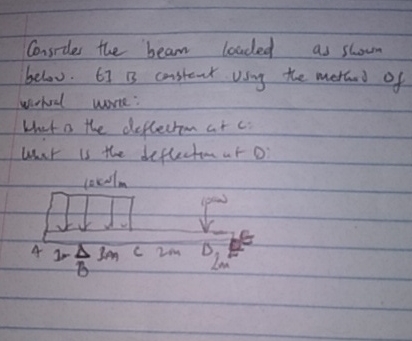 Consider the beam loaded as shown
below. EI is constant using the method of
virtual work:
What is the deflection at C:
What is the deflection at D:
10kN/m
A B 3m C 2m D 2m